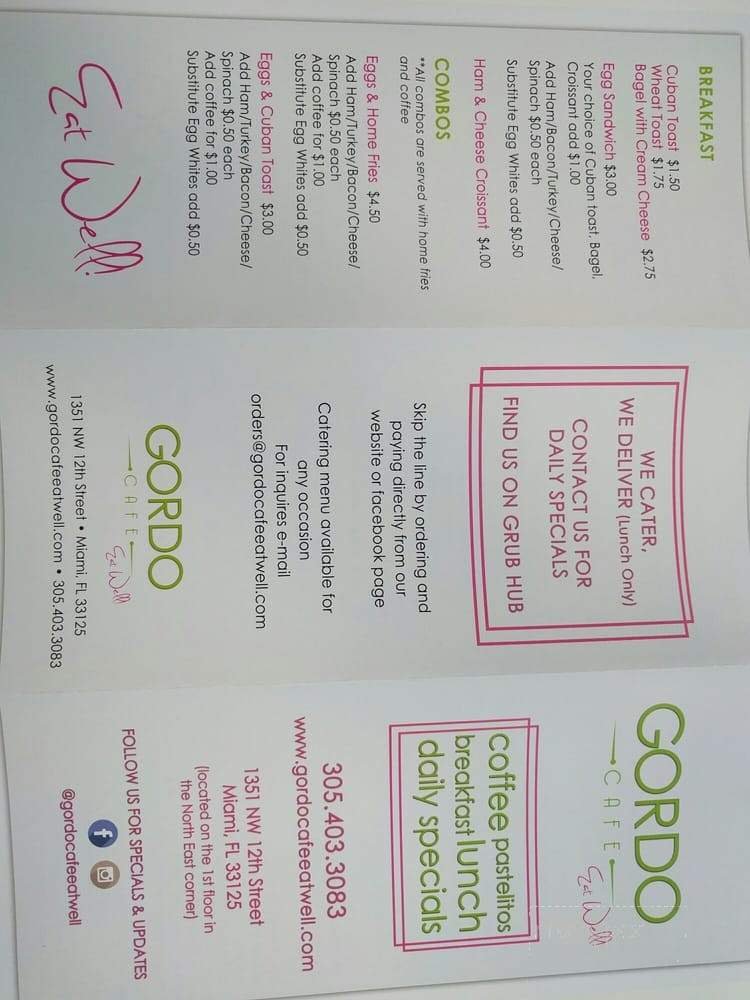 BREAKFAST
Cuban Toast $1.50
Wheat Toast $1.75
Bagel with Cream Cheese $2.75
Egg Sandwich $3.00
Your choice of Cuban toast, Bagel,
Croissant add $1.00
Add Ham/Bacon/Turkey/Cheese/
Spinach $0.50 each
Substitute Egg Whites add $0.50
Ham & Cheese Croissant $4.00
COMBOS
**All combos are served with home fries
and coffee
Eggs & Home Fries $4.50
Add Ham/Turkey/Bacon/Cheese/
Spinach $0.50 each
Add coffee for $1.00
Substitute Egg Whites add $0.50
Eggs & Cuban Toast $3.00
Add Ham/Turkey/Bacon/Cheese/
Spinach $0.50 each
Add coffee for $1.00
Substitute Egg Whites add $0.50
Eat Well!
WE CATER,
WE DELIVER (Lunch Only)
CONTACT US FOR
DAILY SPECIALS
FIND US ON GRUB HUB
Skip the line by ordering and
paying directly from our
website or facebook page
Catering menu available for
any occasion
For inquires e-mail
orders@gordocafeeatwell.com
GORDO
CAFE
Eat Well!
1351 NW 12th Street • Miami, FL 33125
www.gordocafeeatwell.com • 305.403.3083
GORDO
CAFE
Eat Well!
coffee pastelitos
breakfast lunch
daily specials
305.403.3083
www.gordocafeeatwell.com
1351 NW 12th Street
Miami, FL 33125
(located on the 1st floor in
the North East corner)
FOLLOW US FOR SPECIALS & UPDATES
f
@gordocafeeatwell